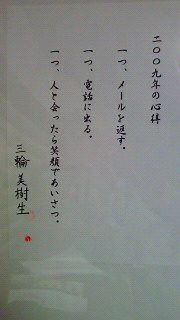 二〇〇九年の心得
一つ、メールを返す。
一つ、電話に出る。
一つ、人と会ったら笑顔であいさつ。
三輪美樹生